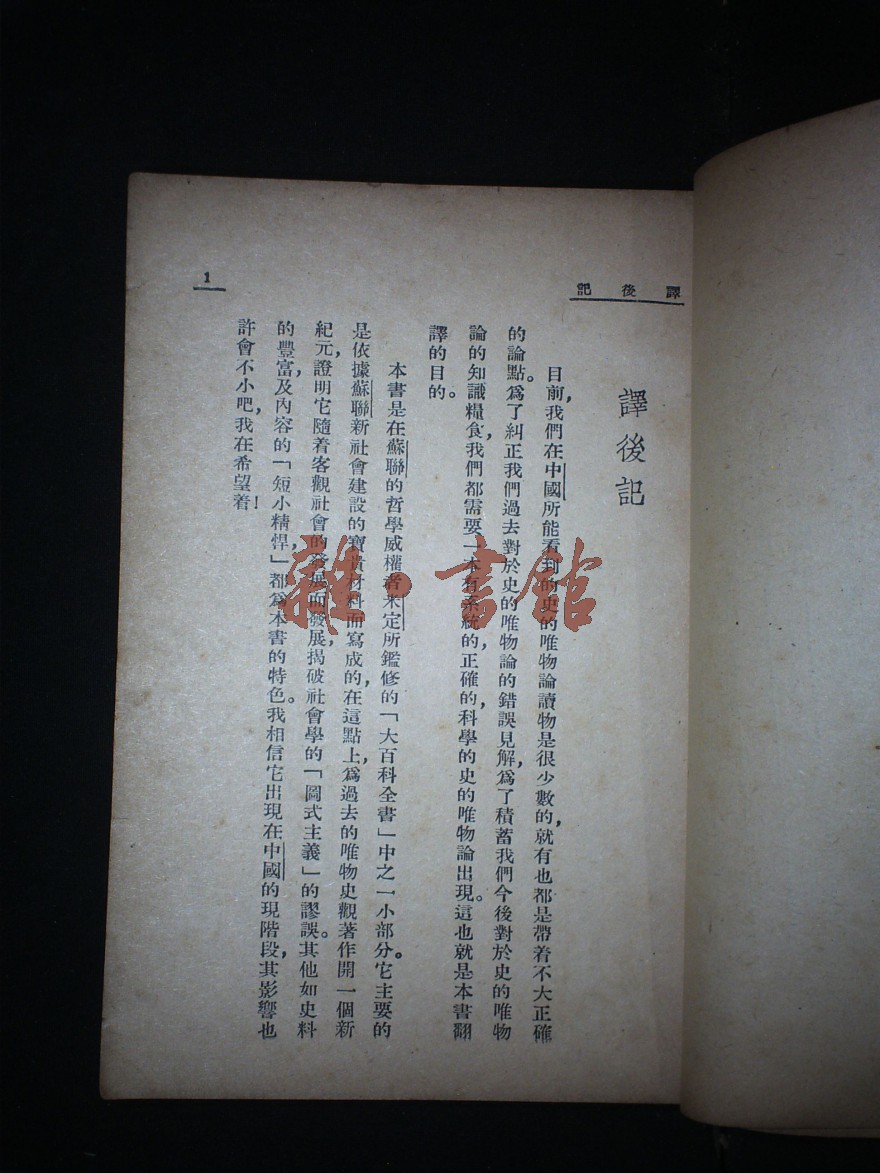 譯後記
1
譯後記
目前,我們在中國所能看到的史的唯物論讀物是很少數的,就有也都是帶着不大正確
的論點。爲了糾正我們過去對於史的唯物論的錯誤見解,爲了積蓄我們今後對於史的唯物
論的知識糧食,我們都需要一本有系統的,正確的,科學的史的唯物論出現。這也就是本書翻
譯的目的。
本書是在蘇聯的哲學威權者米定所鑑修的「大百科全書」中之一小部分。它主要的
是依據蘇聯新社會建設的寶貴材料而寫成的,在這點上,爲過去的唯物史觀著作開一個新
紀元,證明它隨着客觀社會的發展而發展,揭破社會學的「圖式主義」的謬誤。其他如史料
的豐富,及內容的「短小精悍」都爲本書的特色。我相信它出現在中國的現階段,其影響也
許會不小吧,我在希望着!
雜·書館